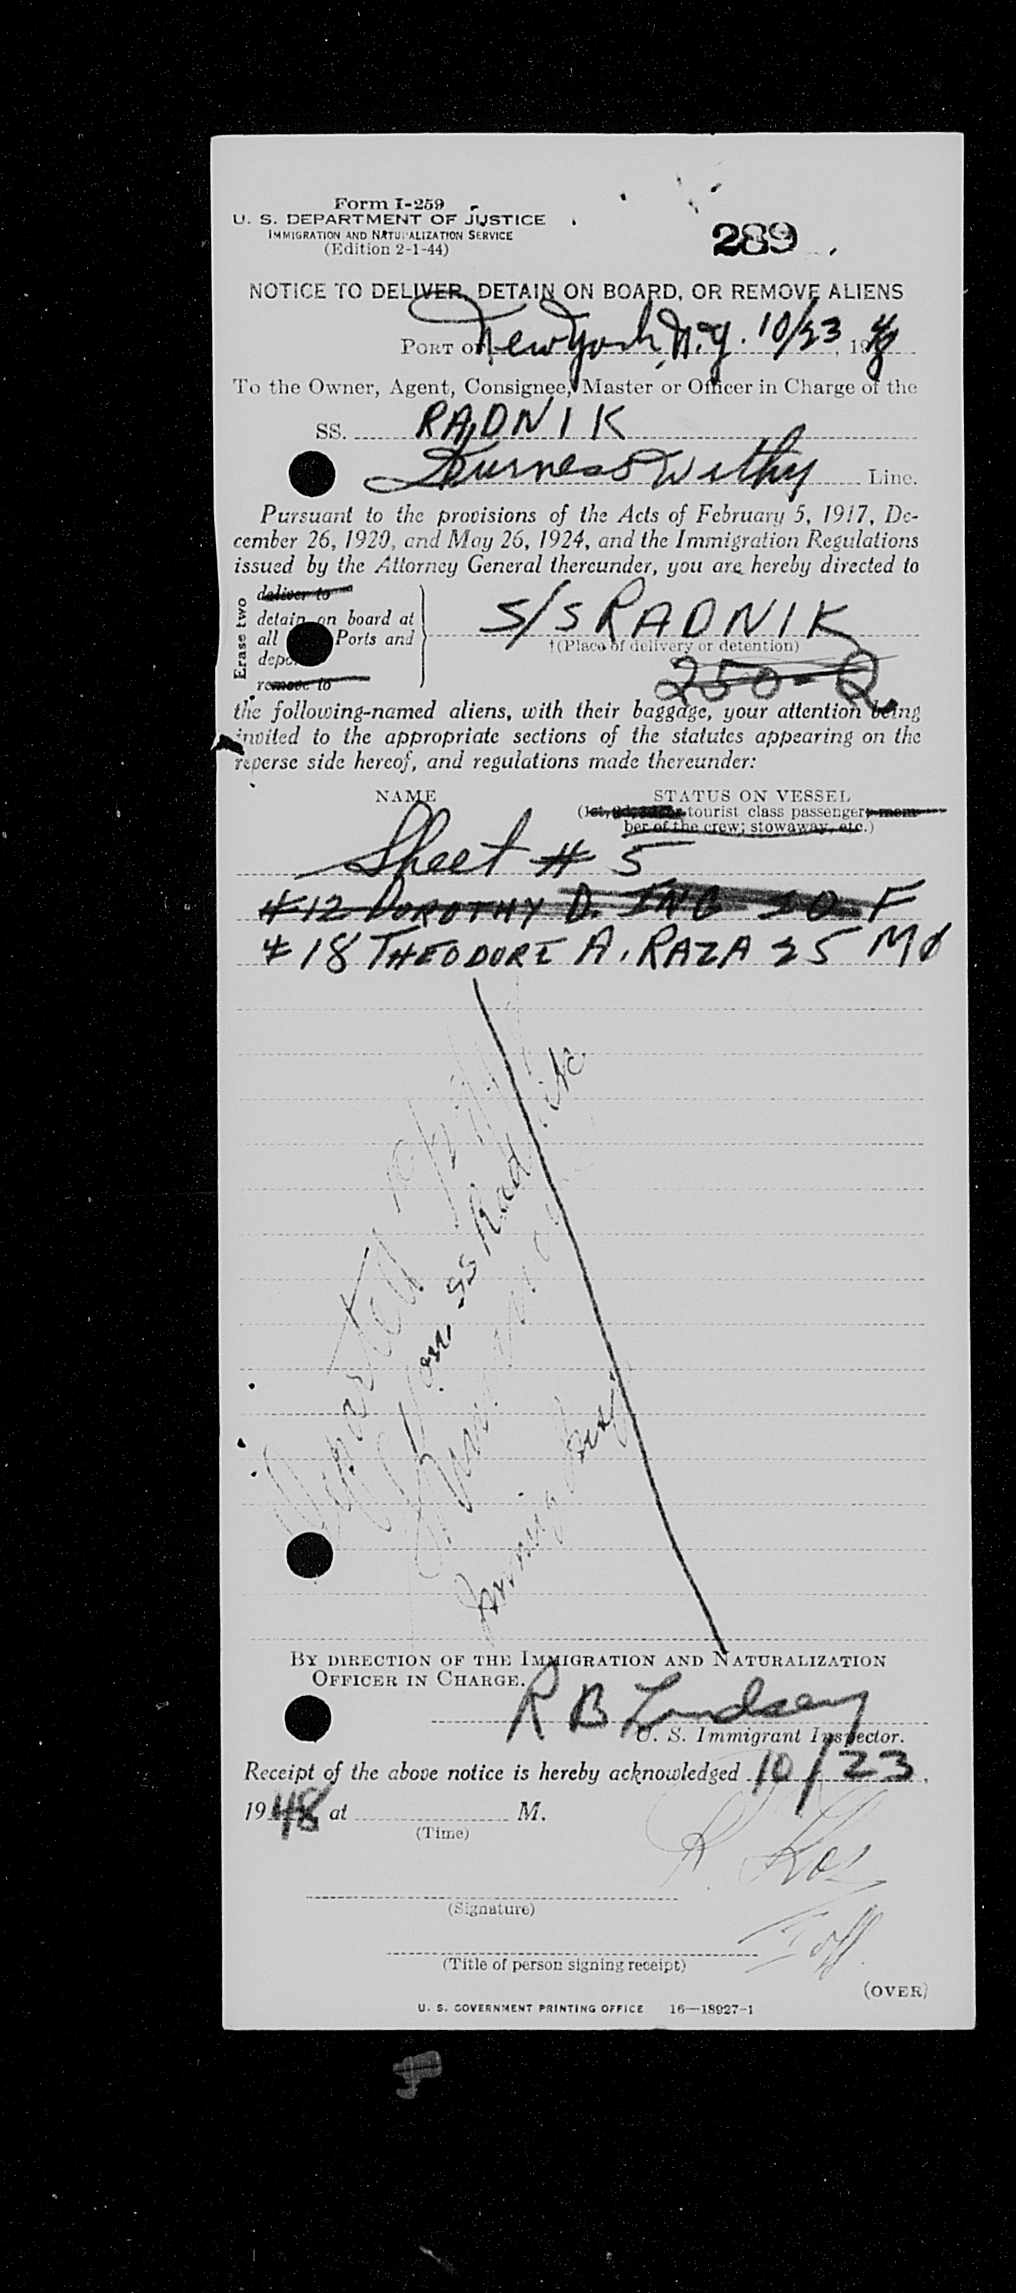 Form I-259
U. S. DEPARTMENT OF JUSTICE
IMMIGRATION AND NATURALIZATION SERVICE
(Edition 2-1-44)
289
NOTICE TO DELIVER, DETAIN ON BOARD, OR REMOVE ALIENS
PORT OF New York, N.Y. 10/23, 1948
To the Owner, Agent, Consignee, Master or Officer in Charge of the
SS. RADNIK
Furness Withy Line.
Pursuant to the provisions of the Acts of February 5, 1917, De-
cember 26, 1920, and May 26, 1924, and the Immigration Regulations
issued by the Attorney General thereunder, you are hereby directed to
Erase two
deliver to
detain on board at
all Ports and
remove to
S/S RADNIK
†(Place of delivery or detention)
250-Q
the following-named aliens, with their baggage, your attention being
invited to the appropriate sections of the statutes appearing on the
reverse side hereof, and regulations made thereunder:
NAME STATUS ON VESSEL
tourist class passenger; mem-
ber of the crew; stowaway, etc.)
Sheet # 5
#12 DOROTHY D. ING 20 F
#18 THEODORE A. RAZA 25 M
Departed
on SS Radnik
BY DIRECTION OF THE IMMIGRATION AND NATURALIZATION
OFFICER IN CHARGE.
R B Lindsey
U. S. Immigrant Inspector.
Receipt of the above notice is hereby acknowledged 10/23,
1948 at M.
(Time)
(Signature)
(Title of person signing receipt)
(OVER)
U. S. GOVERNMENT PRINTING OFFICE 16—18927-1